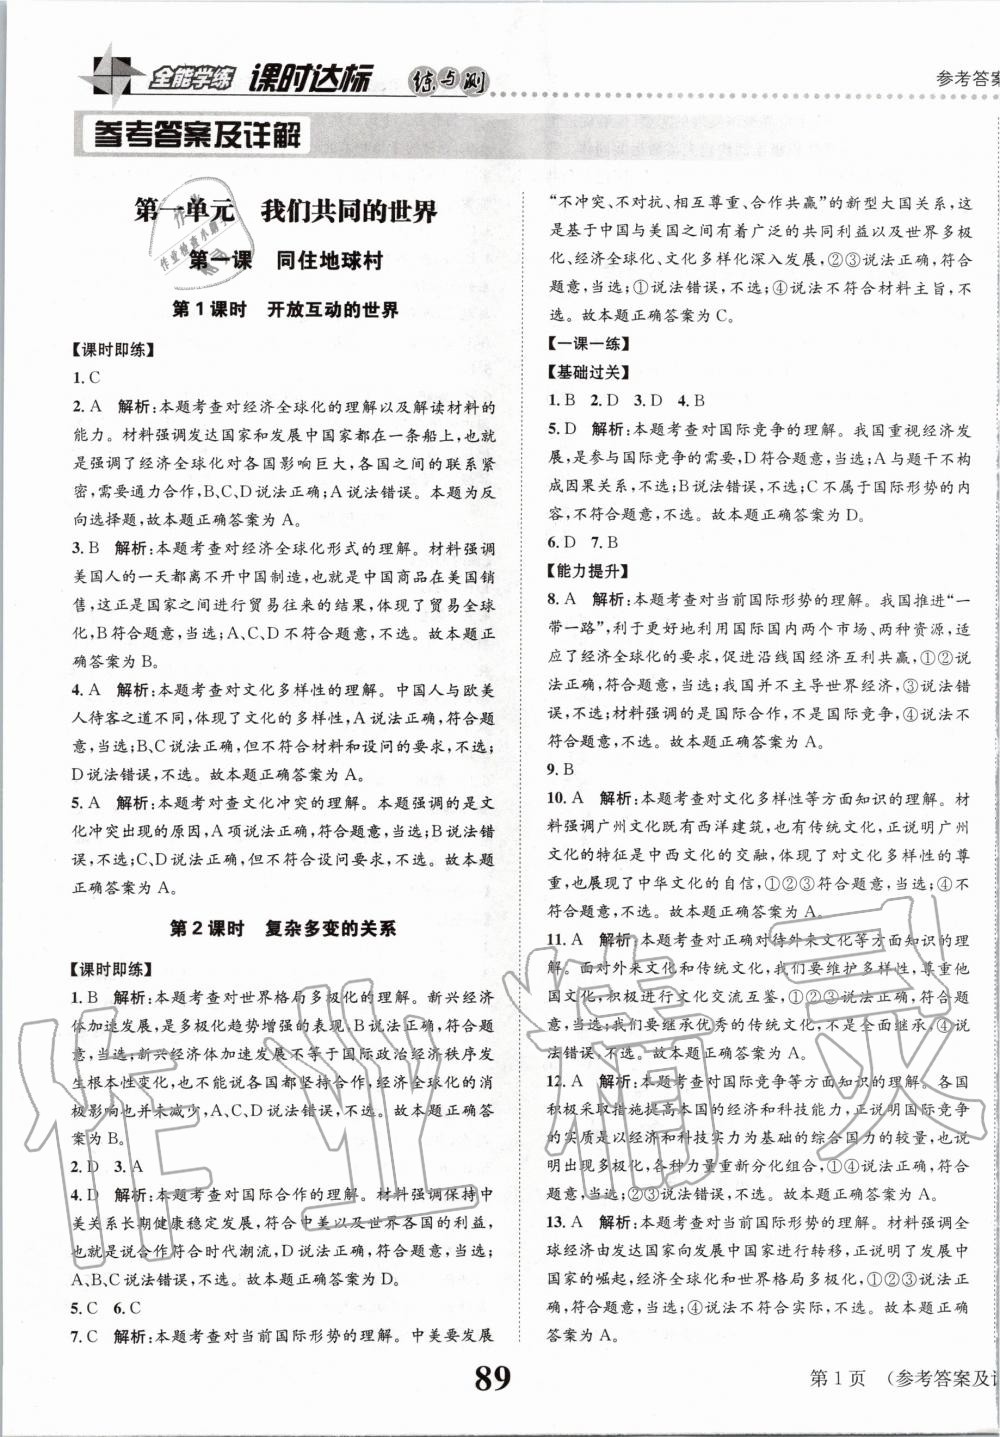 全能学练 课时达标 练与测
参考答案
参考答案及详解
第一单元 我们共同的世界
第一课 同住地球村
第1课时 开放互动的世界
【课时即练】
1. C
2. A 解析:本题考查对经济全球化的理解以及解读材料的
能力。材料强调发达国家和发展中国家都在一条船上,也就
是强调了经济全球化对各国影响巨大,各国之间的联系紧
密,需要通力合作,B、C、D说法正确;A说法错误。本题为反
向选择题,故本题正确答案为 A。
3. B 解析:本题考查对经济全球化形式的理解。材料强调
美国人的一天都离不开中国制造,也就是中国商品在美国销
售,这正是国家之间进行贸易往来的结果,体现了贸易全球
化,B符合题意,当选;A、C、D不符合题意,不选。故本题正
确答案为 B。
4. A 解析:本题考查对文化多样性的理解。中国人与欧美
人待客之道不同,体现了文化的多样性,A说法正确,符合题
意,当选;B、C说法正确,但不符合材料和设问的要求,不选;
D说法错误,不选。故本题正确答案为 A。
5. A 解析:本题考查文化冲突的理解。本题强调的是文
化冲突出现的原因,A项说法正确,符合题意,当选;B说法错
误,不选;C、D说法正确,但不符合设问要求,不选。故本题
正确答案为 A。
第2课时 复杂多变的关系
【课时即练】
1. B 解析:本题考查对世界格局多极化的理解。新兴经济
体加速发展,是多极化趋势增强的表现,B说法正确,符合题
意,当选;新兴经济体加速发展不等于国际政治经济秩序发
生根本性变化,也不能说各国都坚持合作,经济全球化的消
极影响也并未减少,A、C、D说法错误,不选。故本题正确答
案为 B。
2. D 3. A
4. D 解析:本题考查对国际合作的理解。材料强调保持中
美关系长期健康稳定发展,符合中美以及世界各国的利益,
也就是说合作符合时代潮流,D说法正确,符合题意,当选;
A、B、C说法错误,不选。故本题正确答案为 D。
5. C 6. C
7. C 解析:本题考查对当前国际形势的理解。中美要发展
“不冲突、不对抗、相互尊重、合作共赢”的新型大国关系,这
是基于中国与美国之间有着广泛的共同利益以及世界多极
化、经济全球化、文化多样化深入发展,②③说法正确,符合
题意,当选;①说法错误,不选;④说法不符合材料主旨,不
选。故本题正确答案为 C。
【一课一练】
【基础过关】
1. B 2. D 3. D 4. B
5. D 解析:本题考查对国际竞争的理解。我国重视经济发
展,是参与国际竞争的需要,D符合题意,当选;A与题干不构
成因果关系,不选;B说法错误,不选;C不属于国际形势的内
容,不符合题意,不选。故本题正确答案为 D。
6. D 7. B
【能力提升】
8. A 解析:本题考查对当前国际形势的理解。我国推进“一
带一路”,利于更好地利用国际国内两个市场、两种资源,适
应了经济全球化的要求,促进沿线国经济互利共赢,①②说
法正确,符合题意,当选;我国并不主导世界经济,③说法错
误,不选;材料强调的是国际合作,不是国际竞争,④说法不
符合题意,不选。故本题正确答案为 A。
9. B
10. A 解析:本题考查对文化多样性等方面知识的理解。材
料强调广州文化既有西洋建筑,也有传统文化,正说明广州
文化的特征是中西文化的交融,体现了对文化多样性的尊
重,也展现了中华文化的自信,①②③符合题意,当选;④不
符合题意,不选。故本题正确答案为 A。
11. A 解析:本题考查对正确对待外来文化等方面知识的理
解。面对外来文化和传统文化,我们要维护多样性,尊重他
国文化,积极进行文化交流互鉴,①②③说法正确,符合题
意,当选;我们要继承优秀的传统文化,不是全面继承,④说
法错误,不选。故本题正确答案为 A。
12. A 解析:本题考查对国际竞争等方面知识的理解。各国
积极采取措施提高本国的经济和科技能力,正说明国际竞争
的实质是以经济和科技实力为基础的综合国力的较量,也说
明出现多极化,各种力量重新分化组合,①④说法正确,符合
题意,当选;②③说法错误,不选。故本题正确答案为 A。
13. A 解析:本题考查对当前国际形势的理解。材料强调全
球经济由发达国家向发展中国家进行转移,正说明了发展中
国家的崛起,经济全球化和世界格局多极化,①②③说法正
确,符合题意,当选;④说法不符合实际,不选。故本题正确
答案为 A。
作业精灵
89
第 1 页 (参考答案及